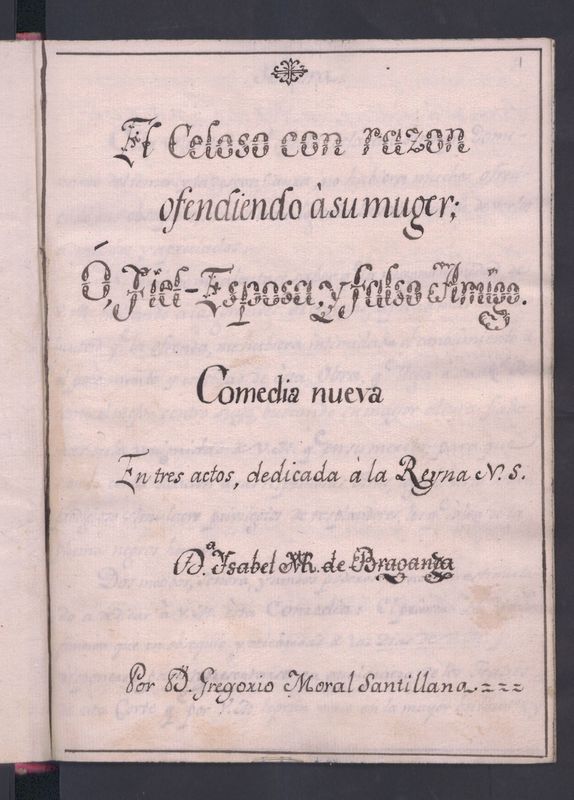 1
El Celoso con razon
ofendiendo à su muger;
Ó, Fiel-Esposa, y falso Amigo.
Comedia nueva
En tres actos, dedicada à la Reyna N. S.
D.ª Ysabel M. de Braganza
Por D. Gregorio Moral Santillana